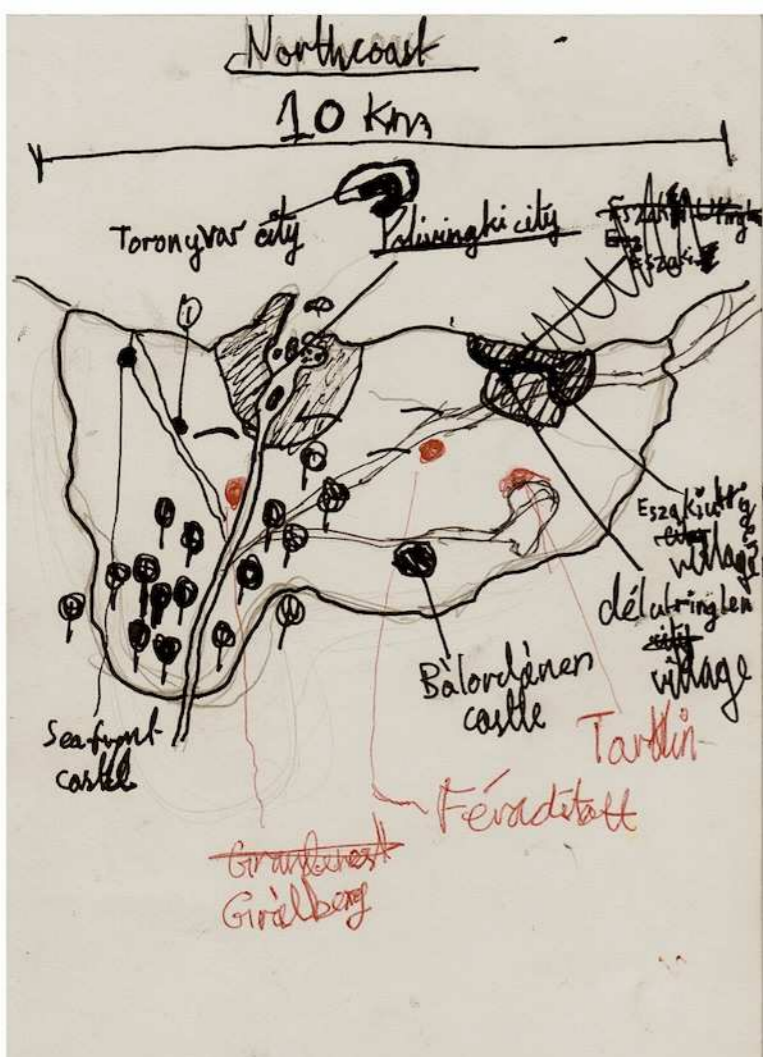 Northcoast
10 Km
Toronyvar city
Polivingki city
1
Eszakiutrig
village
délutringten
city
village
Bàlordánen
castle
Seafront
castel
Tarklin
Féradítatt
Giràlberg